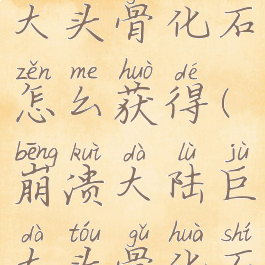 大头骨化石
zěn me huò dé
怎么获得(
bēng kuì dà lù jù
崩溃大陆巨
dà tóu gǔ huà shí
大头骨化石